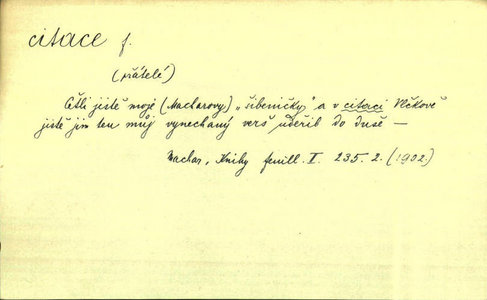 citace f.
(přátelé)
Četli jistě mojé (Macharovy) „šibeničky" a v citaci Vlčkově
jistě jim ten můj vynechaný verš udeřil do duše —
Machar, Knihy feuill. I. 235. 2. (1902)